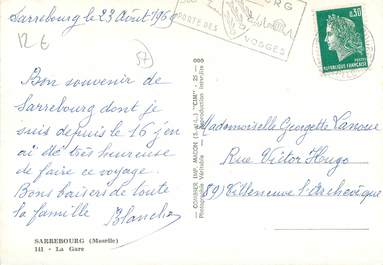 Sarrebourg le 23 Août 1969
12 €
57
PORTE DES VOSGES
0,30
POSTES
REPUBLIQUE FRANÇAISE
Bon souvenir de
Sarrebourg dont je
suis depuis le 16 j'en
ai été très heureuse
de faire ce voyage.
Bons baisers de toute
la famille Blanche
SARREBOURG (Moselle)
111 - La Gare
COMBIER IMP. MACON (S.-et-L.) "CIM"
Photographie Véritable - Reproduction Interdite
Mademoiselle Georgette Lanoue
Rue Victor Hugo
89) Villeneuve l'Archevêque